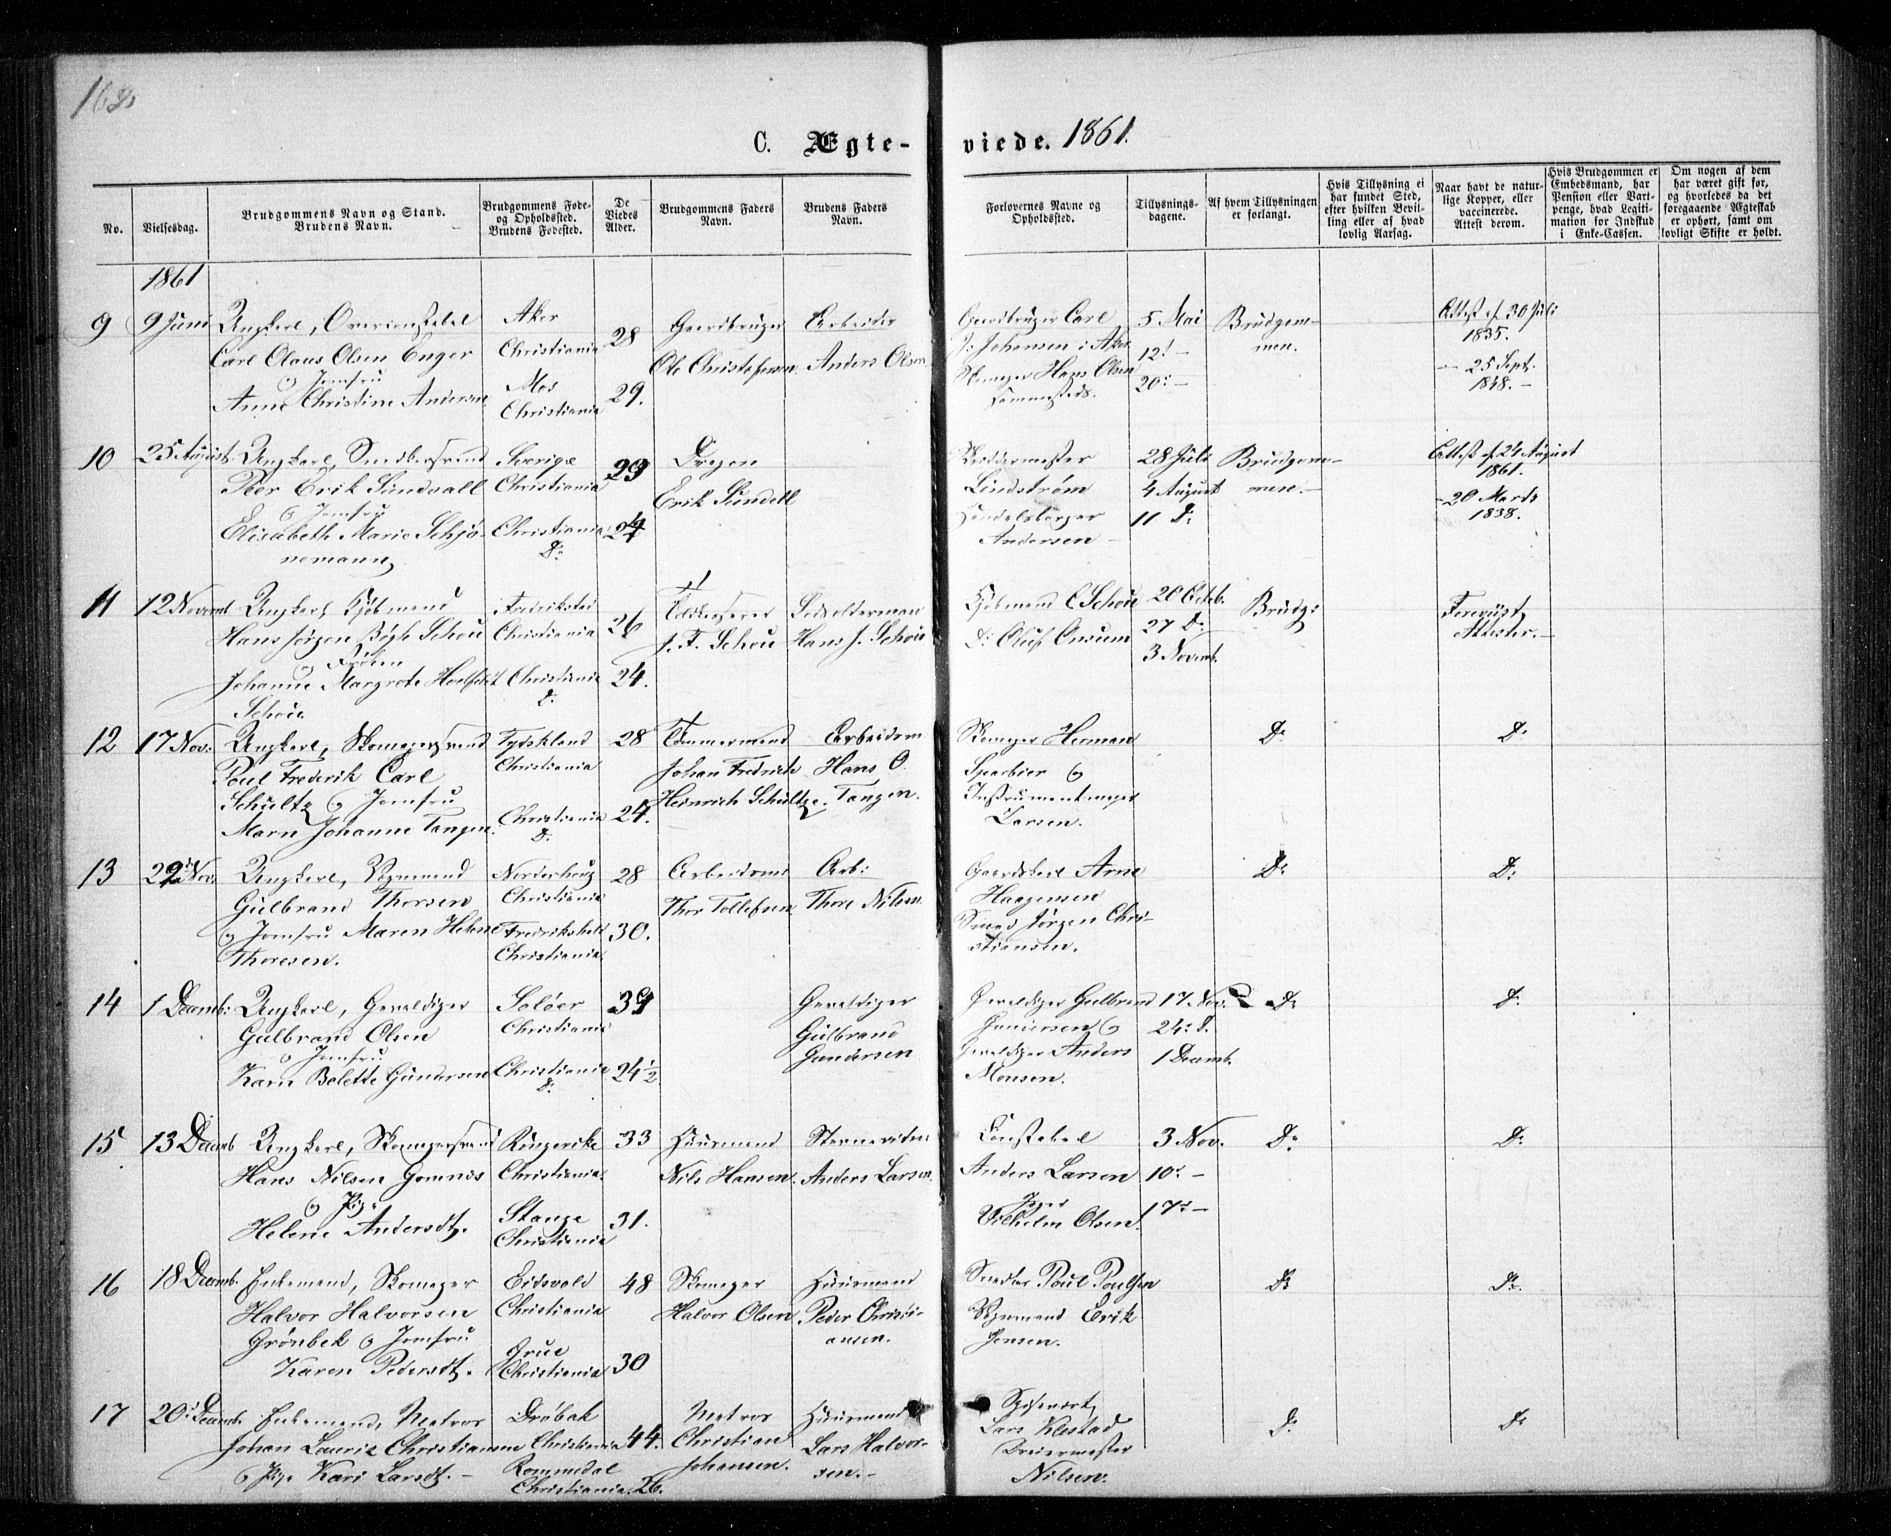 168.
C. Ægte- viede. 1861.
No.
Vielsesdag.
Brudgommens Navn og Stand.
Brudens Navn.
Brudgommens Føde-
og Opholdssted.
Brudens Fødested.
De
Viedes
Alder.
Brudgommens Faders
Navn.
Brudens Faders
Navn.
Forlovernes Navne og
Opholdssted.
Tillysnings-
dagene.
Af hvem Tillysningen
er forlangt.
Hvis Tillysning ei
har fundet Sted,
efter hvilken Bevil-
ling eller af hvad
lovlig Aarsag.
Naar havt de natur-
lige Kopper, eller
vaccinerede.
Attest derom.
Hvis Brudgommen er
Embedsmand, har
Pension eller Vart-
penge, hvad Legiti-
mation for Indskud
i Enke-Cassen.
Om nogen af dem
har været gift før,
og hvorledes da det
foregaaende Ægteskab
er ophørt, samt om
lovligt Skifte er holdt.
1861
9
9 Juni
Ungkarl, Overconstabel
Carl Olaus Olsen Enger
og Jomfru
Anne Christine Andersen
Aker
Christiania
Mos
Christiania
28
29.
Gaardbruger
Ole Christofersen
Arbeider
Anders Olsen
Gaardbruger Carl
J: Johansen i Aker
Skomager Hans Olsen
sammesteds.
5 Mai
12! -
20: -
Brudgom-
men.
Attest af 30 Juli
1835.
- 25 Sept.
1848. -
10
25 August
Ungkarl, Snedkersvend
Peer Erik Sundvall
og Jomfru
Elisabeth Marie Schjø-
nemann
Sverige
Christiania
Christiania
D:
29
24
Dragon
Erik Sundell
Skræddermester
Lindstrøm
Handelsborger
Andersen -
28 Juli
4 August
11 D:
Brudgom-
men. -
Attest af 24 August
1861.
- 20 Marts
1838.
11
12 Novemb
Ungkarl, Kjøbmand
Hans Jørgen Bøgh Schou
og Frøken
Johanne Margrete
Schou
Fredriksted
Christiania
Christiania
D:
26
24.
J. F. Schou
Hans J. Schou
Kjøbmand C Schou
D: Oluf Onsum
20 Octb.
27 D:
3 Novemb.
Brudg:
Forevist
Attester. -
12
17 Nov:
Ungkarl, Skomagersvend
Poul Frederik Carl
Schultz og Jomfru
Marn Johanne Tangen.
Tydskland
Christiania
Christiania
D:
28
24.
Tømmermand
Johan Fredrich
Heinrich Schultze.
Arbeidsm
Hans O.
Tangen.
Skomager Herman
Sparbier og
Instrumentmager
Larsen.
D:
D:
13
Nov:
Ungkarl, Vognmand
Gulbrand Thorsen
og Jomfru Maren Helene
Thoresen.
Norderhoug
Christiania
Fredrikshald
Christiania
28
30.
Arbeidsmd
Thor Tollefsen
Arb:
Thore Nilsen
Gaardskarl Arne
Haagensen
Smed Jørgen Chri-
stiansen.
D:
D:
14
1 Decemb:
Ungkarl, Gevaldiger
Gulbrand Olsen
og Jomfru
Karn Bolette Gundersen
Soløer
Christiania
Christiania
D:
24½
Gevaldiger
Gulbrand
Gundersen
Gevaldiger Gulbrand
Gundersen og
Gevaldiger Anders
Monsen.
17 Nov.
24: D.
1 Decemb.
D:
D:
15
13 Decemb
Ungkarl, Skomagersvend
Hans Nilsen Gomnæs
og Pige
Helene Andersdt.
Ringerike
Christiania
Stange
Christiania
33
31.
Huusmand
Nils Hansen
Anders Larsen
Constabel
Anders Larsen
Vilhelm Olsen.
3 Nov.
10: -
17: -
D:
D:
16
18 Decemb.
Enkemand, Skomager
Halvor Halvorsen
Grønbek og Jomfru
Karen Pedersdt.
Eidsvold
Christiania
Grue
Christiania
48
30
Skomager
Halvor Olsen
Huusmand
Peder Christi-
ansen.
Snedker Poul Poulsen
Vognmand Erik
Jensen.
D:
D:
17
20 Decemb.
Enkemand, Matros
Johan Lauriz Christiansen
og Pige Kari Larsdt. -
Drøbak
Christiania
Rommedal
Christiania.
44.
26.
Matros
Christian
Johansen.
Huusmand
Lars Halvor-
sen. -
Spisevært
Lars Klestad
Dreiermester
Nilsen.
D:
D: